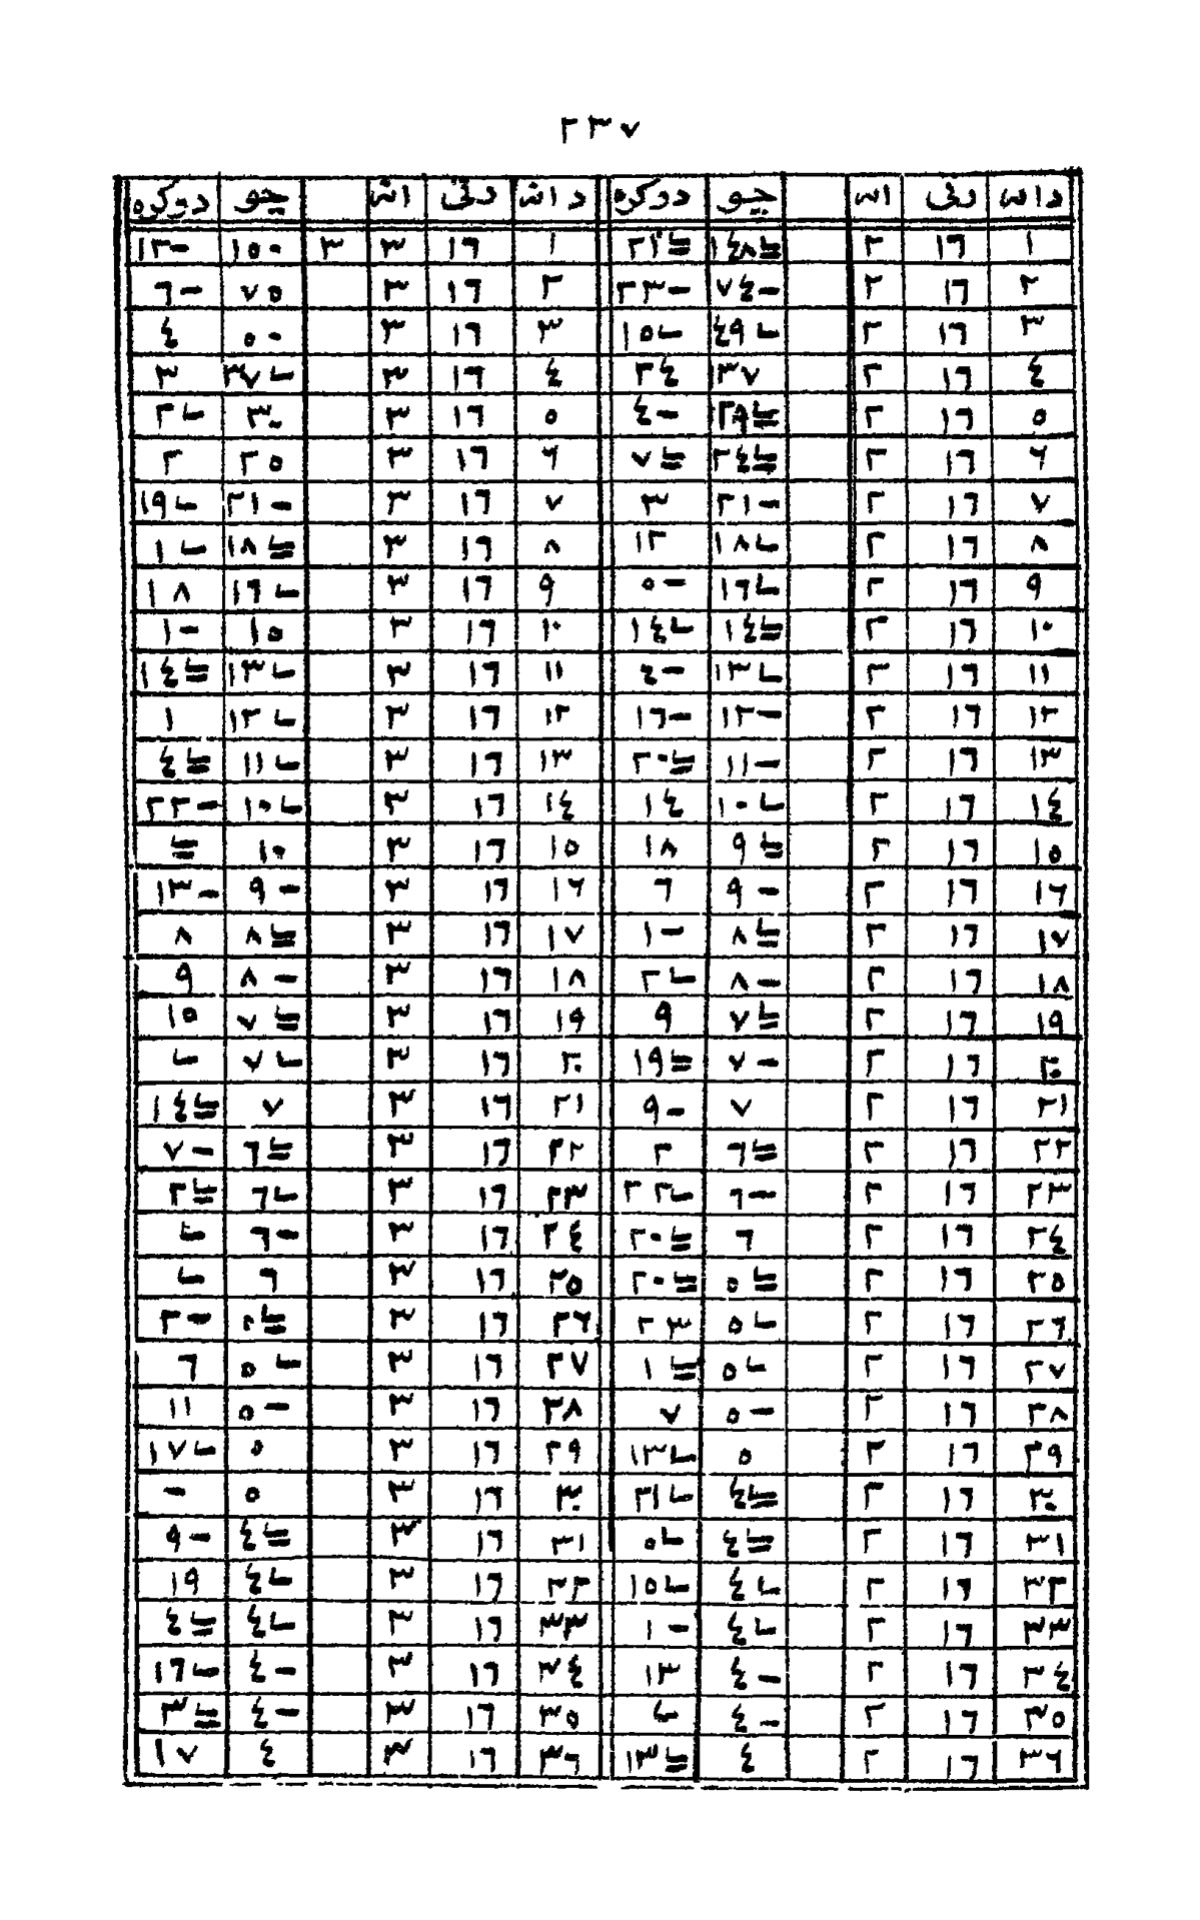 ٢٣٧
دانه رتي انه چو دوكره دانه رتي انه چو دوكره
١ ١٦ ٢ ١٤٨ ٢١ ١ ١٦ ٣ ٣ ١٥٠ ١٢-
٢ ١٦ ٢ ٧٤- ٢٣- ٢ ١٦ ٣ ٧٥ ٦-
٣ ١٦ ٢ ٤٩ ١٥ ٣ ١٦ ٣ ٥٠ ٤
٤ ١٦ ٢ ٣٧ ٢٤ ٤ ١٦ ٣ ٣٧ ٣
٥ ١٦ ٢ ٢٩ ٤- ٥ ١٦ ٣ ٣٠ ٢
٦ ١٦ ٢ ٢٤ ٧ ٦ ١٦ ٣ ٢٥ ٢
٧ ١٦ ٢ ٢١- ٣ ٧ ١٦ ٣ ٢١- ١٩
٨ ١٦ ٢ ١٨ ١٢ ٨ ١٦ ٣ ١٨ ١
٩ ١٦ ٢ ١٦ ٥- ٩ ١٦ ٣ ١٦ ١٨
١٠ ١٦ ٢ ١٤ ١٤ ١٠ ١٦ ٣ ١٥ ١-
١١ ١٦ ٢ ١٣ ٤- ١١ ١٦ ٣ ١٣ ١٤
١٢ ١٦ ٢ ١٢- ١٦- ١٢ ١٦ ٣ ١٢ ١
١٣ ١٦ ٢ ١١- ٢٠ ١٣ ١٦ ٣ ١١ ٤
١٤ ١٦ ٢ ١٠ ١٤ ١٤ ١٦ ٣ ١٠ ٢٢-
١٥ ١٦ ٢ ٩ ١٨ ١٥ ١٦ ٣ ١٠
١٦ ١٦ ٢ ٩- ٦ ١٦ ١٦ ٣ ٩- ١٣-
١٧ ١٦ ٢ ٨ ١- ١٧ ١٦ ٣ ٨ ٨
١٨ ١٦ ٢ ٨- ٢ ١٨ ١٦ ٣ ٨- ٩
١٩ ١٦ ٢ ٧ ٩ ١٩ ١٦ ٣ ٧ ١٥
٢٠ ١٦ ٢ ٧- ١٩ ٢٠ ١٦ ٣ ٧
٢١ ١٦ ٢ ٧ ٩- ٢١ ١٦ ٣ ٧ ١٤
٢٢ ١٦ ٢ ٦ ٢ ٢٢ ١٦ ٣ ٦ ٧-
٢٣ ١٦ ٢ ٦- ٢٢ ٢٣ ١٦ ٣ ٦ ٢
٢٤ ١٦ ٢ ٦ ٢٠ ٢٤ ١٦ ٣ ٦-
٢٥ ١٦ ٢ ٥ ٢٠ ٢٥ ١٦ ٣ ٦
٢٦ ١٦ ٢ ٥ ٢٣ ٢٦ ١٦ ٣ ٥ ٢-
٢٧ ١٦ ٢ ٥ ١ ٢٧ ١٦ ٣ ٥ ٦
٢٨ ١٦ ٢ ٥- ٧ ٢٨ ١٦ ٣ ٥- ١١
٢٩ ١٦ ٢ ٥ ١٣ ٢٩ ١٦ ٣ ٥ ١٧
٣٠ ١٦ ٢ ٤ ٢١ ٣٠ ١٦ ٣ ٥ -
٣١ ١٦ ٢ ٤ ٥ ٣١ ١٦ ٣ ٤ ٩-
٣٢ ١٦ ٢ ٤ ١٥ ٣٢ ١٦ ٣ ٤ ١٩
٣٣ ١٦ ٢ ٤ ١- ٣٣ ١٦ ٣ ٤ ٤
٣٤ ١٦ ٢ ٤- ١٣ ٣٤ ١٦ ٣ ٤- ١٦
٣٥ ١٦ ٢ ٤- ٣٥ ١٦ ٣ ٤- ٣
٣٦ ١٦ ٢ ٤ ١٣ ٣٦ ١٦ ٣ ٤ ١٧